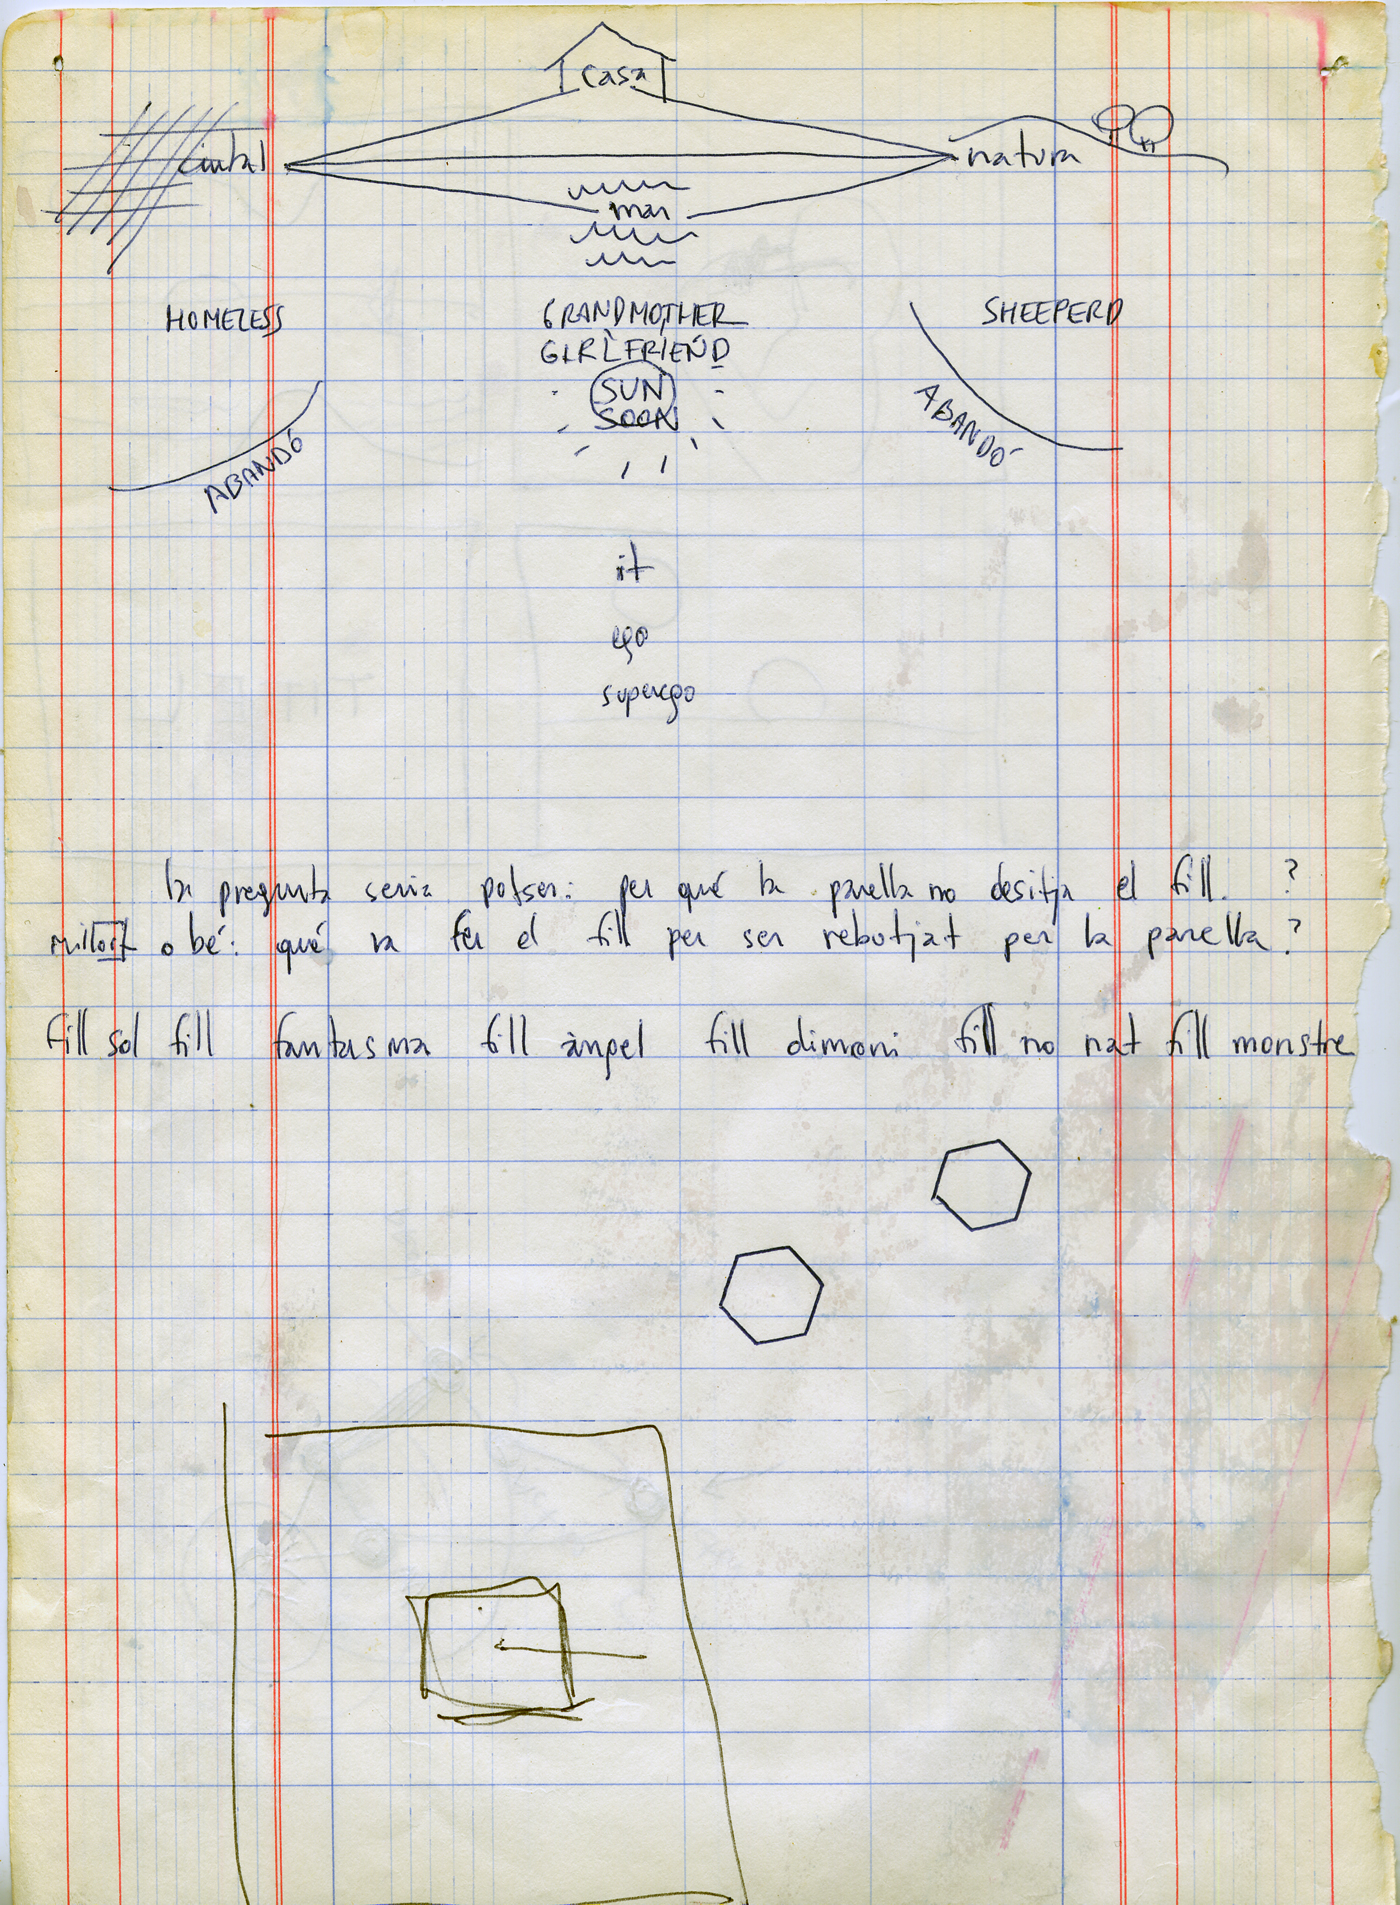 casa
ciutat
natura
mar
HOMELESS
GRANDMOTHER
SHEEPERD
GIRLFRIEND
SUN
SOON
ABANDÓ
ABANDÓ
it
ego
superego
la pregunta seria potser: per qué la parella no desitja el fill. ?
millor o bé: qué va fer el fill per ser rebutjat per la parella?
fill sol fill fantasma fill àngel fill dimoni fill no nat fill monstre